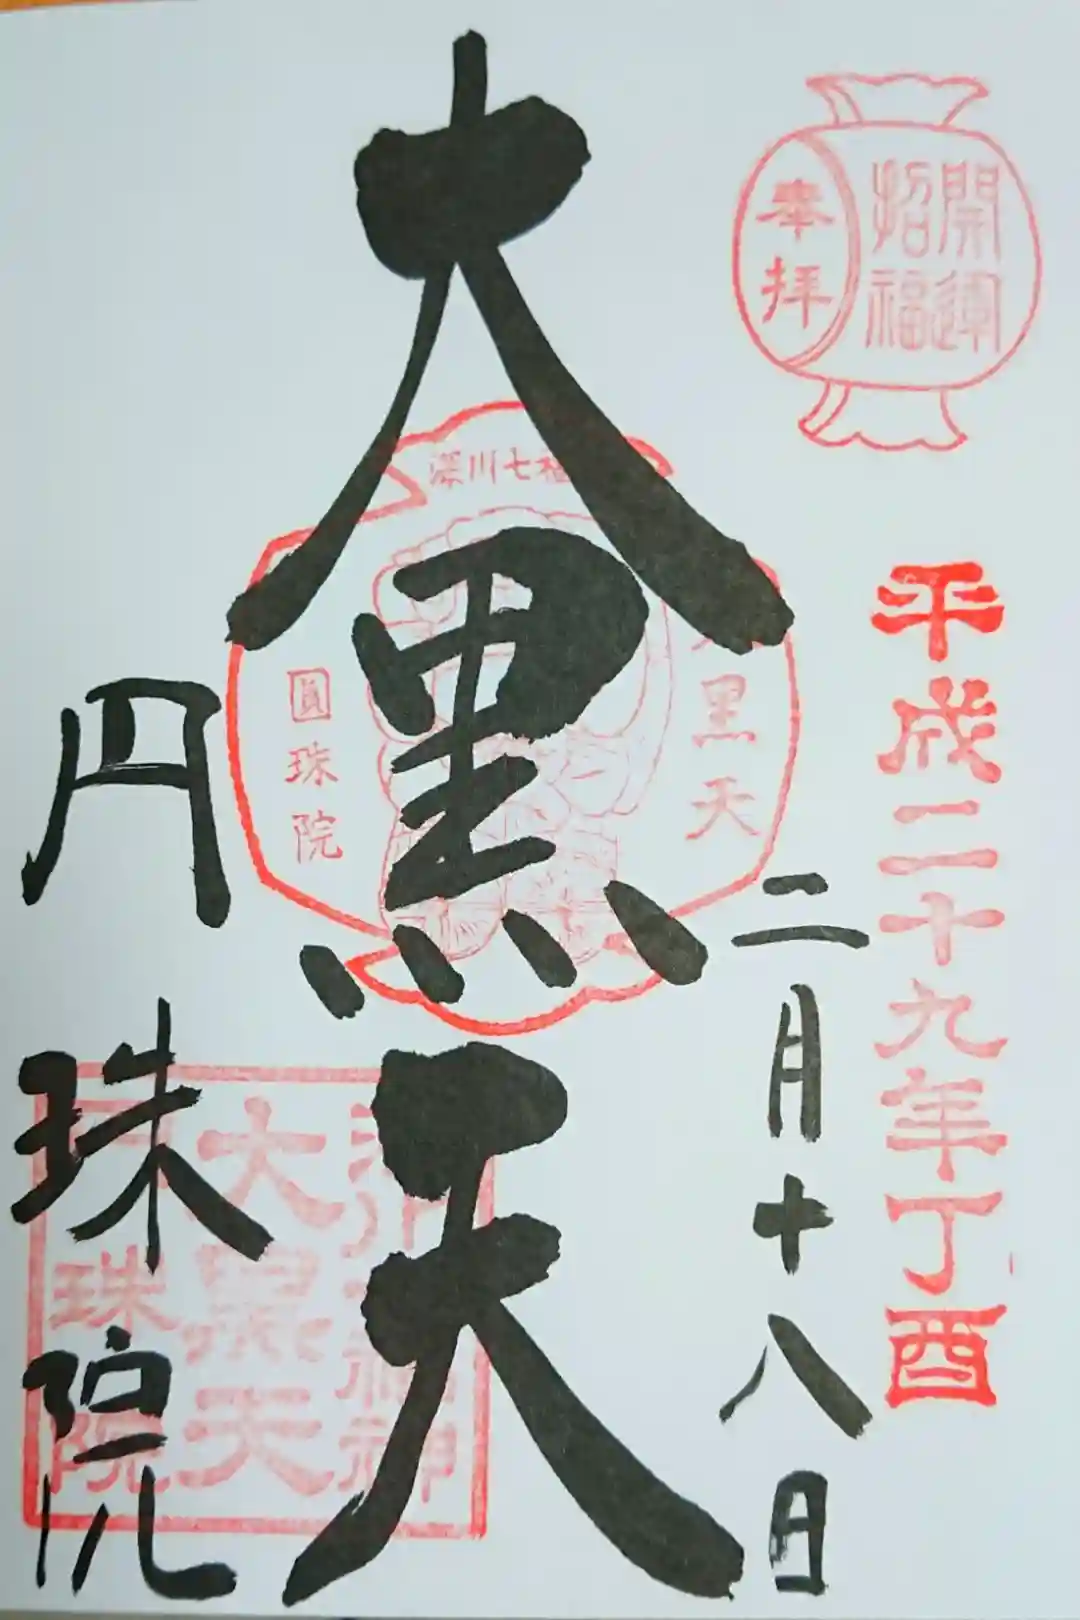 開運
招福
奉拝
平成二十九年丁酉
二月十八日
大黒天
深川七福
黒天
圓珠院
円珠院
福神
大黒天
珠院